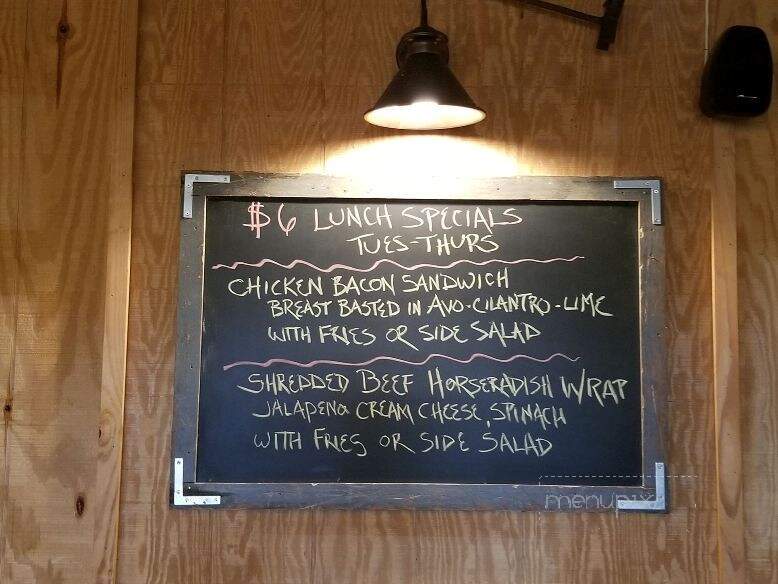 $6 LUNCH SPECIALS
TUES-THURS
CHICKEN BACON SANDWICH
BREAST BASTED IN AVO-CILANTRO-LIME
WITH FRIES OR SIDE SALAD
SHREDDED BEEF HORSERADISH WRAP
JALAPENO CREAM CHEESE, SPINACH
WITH FRIES OR SIDE SALAD
menupix